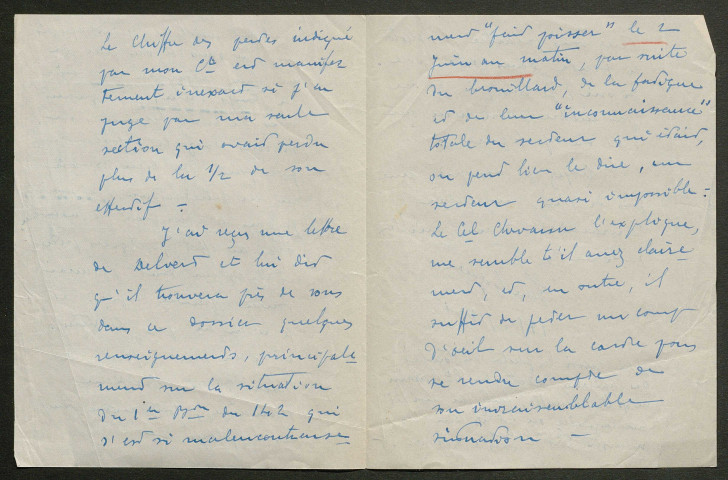 Le chiffre des pertes indiqué
par mon Ct est manifes
tement inexact si j'en
juge par ma seule
section qui avait perdu
plus de la 1/2 de son
effectif -
J'ai reçu une lettre
de Delvert et lui dit
qu'il trouvera près de vous
dans ce dossier quelques
renseignements, principale
ment sur la situation
du 1er Bon du 142 qui
s'est si malencontreuse
ment "fait poisser" le 2
Juin au matin, par suite
du brouillard, de la fatigue
et de leur "inconnaissance"
totale du secteur qui était,
on peut bien le dire, un
secteur quasi impossible -
Le Cel Chavanne l'explique,
me semble t'il assez claire
ment, et, en outre, il
suffit de jeter un coup
d'œil sur la carte pour
se rendre compte de
son invraisemblable
situation -